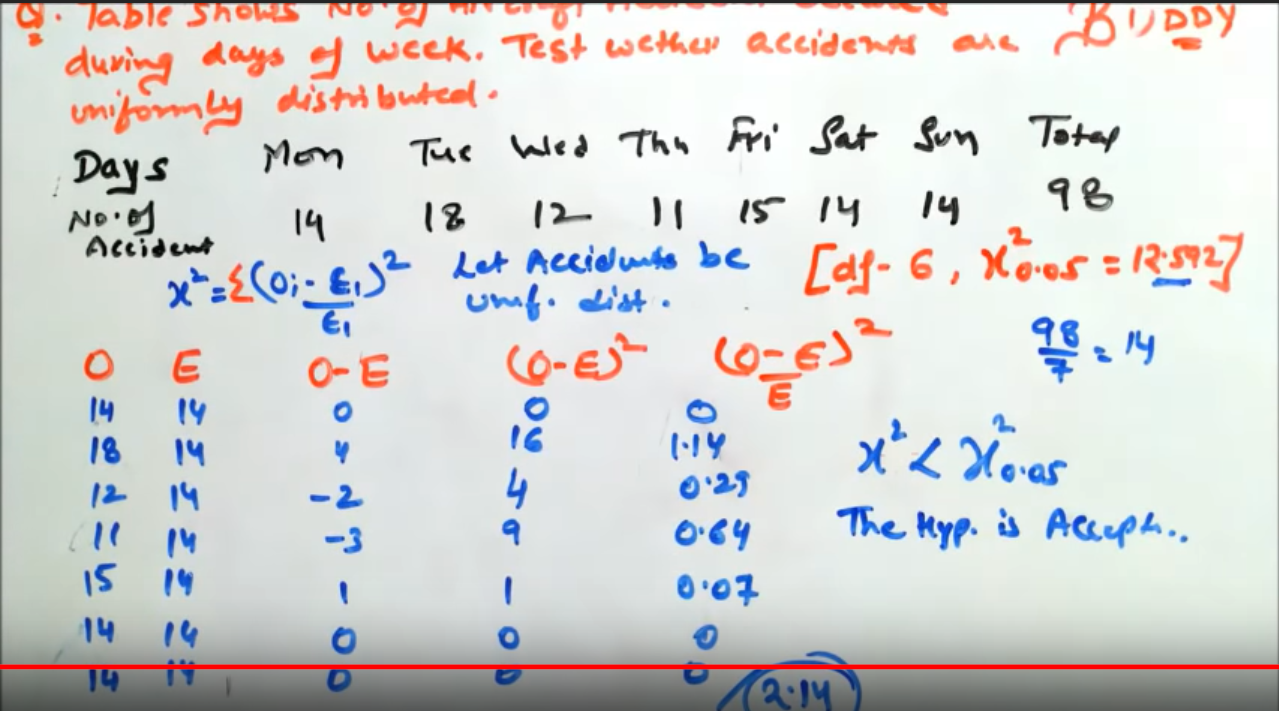 Q. Table shows No. of Aircraft Accident
during days of week. Test wether accidents are
uniformly distributed.
Days Mon Tue Wed Thu Fri Sat Sun Total
No. of Accident 14 18 12 11 15 14 14 98
x² = Σ(Oi - E1)²/E1 Let Accidents be unif. dist. [df- 6, x²0.05 = 12.592]
98/7 = 14
O E O-E (O-E)² (O-E)²/E
14 14 0 0 0
18 14 4 16 1.14
12 14 -2 4 0.29
11 14 -3 9 0.64
15 14 1 1 0.07
14 14 0 0 0
14 14 0 0 0
2.14
x² < x²0.05
The Hyp. is Accept..